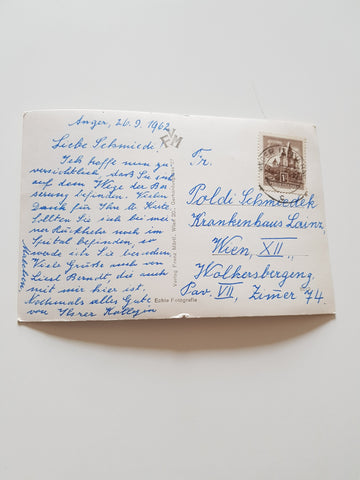 Anger, 26.9.1962
Liebe Schmiede!
Ich hoffe nun zu-
versichtlich, daß Sie viel
auf dem Wege der Bes-
serung befinden. Vielen
Dank für Ihre l. Karte.
Sollten Sie sich bei mei-
ner Rückkehr noch im
Spital befinden, so
werde ich Sie besuchen.
Viele Grüße auch von
Liesl Berndt, die auch
mit mir hier ist.
Nochmals alles Gute
von Ihrer Kollegin
FNM
Verlag Franz Mörtl, Wien 20.
Echte Fotografie
Fr.
Poldi Schmiedek
Krankenhaus Lainz
Wien, XII.,
Wolkersbergeng.
Pav. VII, Zimmer 74.